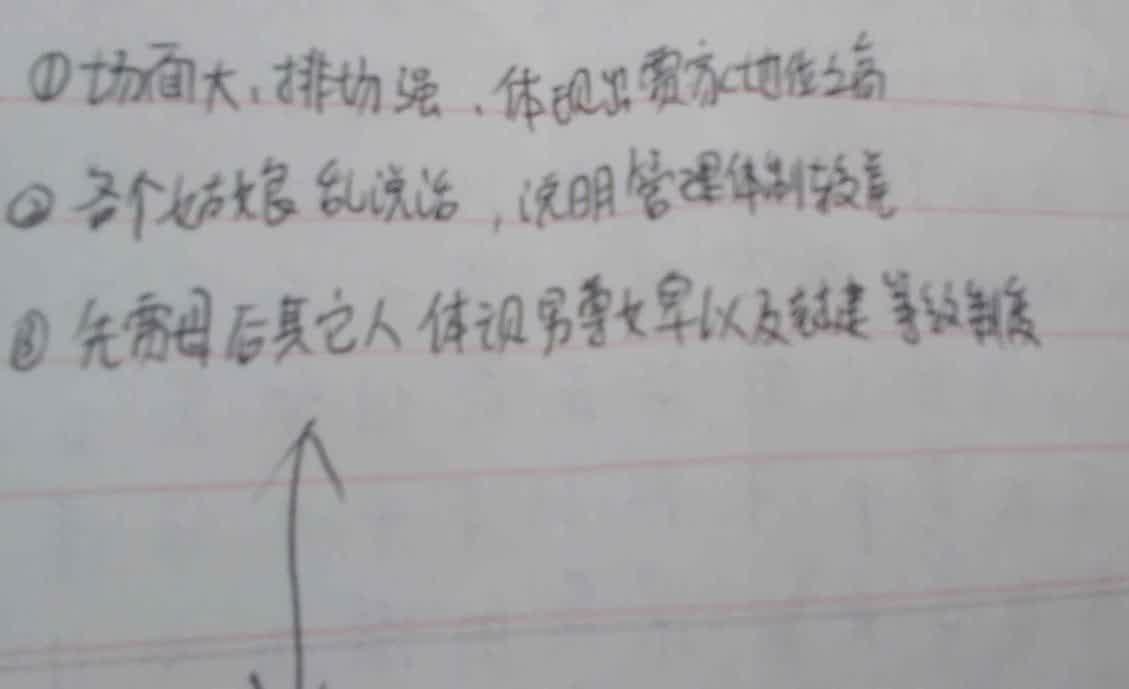 ①场面大、排场强、体现出贾府地位之高
② 各个姑娘乱说话,说明管理体制较宽
③ 先贾母后其它人 体现男尊女卑以及封建 等级制度